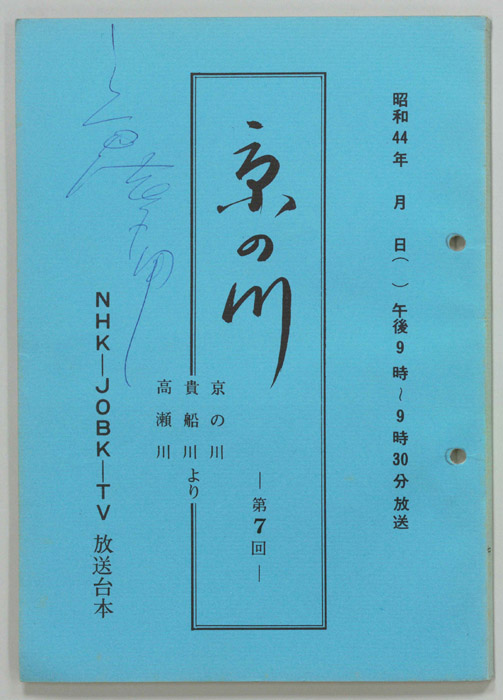 昭和44年　月　日(　)午後9時〜9時30分放送
京の川
―第7回―
京の川
貴船川より
高瀬川
NHK―JOBK―TV 放送台本